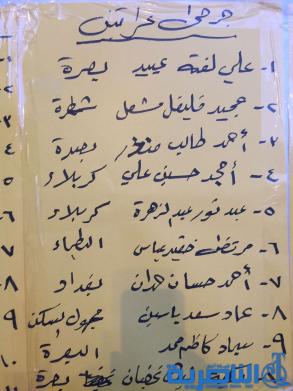 جرحى عراقيين
١- علي لفتة عبيد بصرة
٢- مجيد فليفل مشعل شطرة
٣- أحمد طالب بصرة
٤- أمجد حسين علي كربلاء
٥- عبد نور عبد الزهرة كربلاء
٦- مرتضى خضير عباس البطحاء
٧- أحمد حسان بغداد
٨- عماد سعد ياسين مجهول السكن
٩- سجاد كاظم محمد البصرة
الناصرية